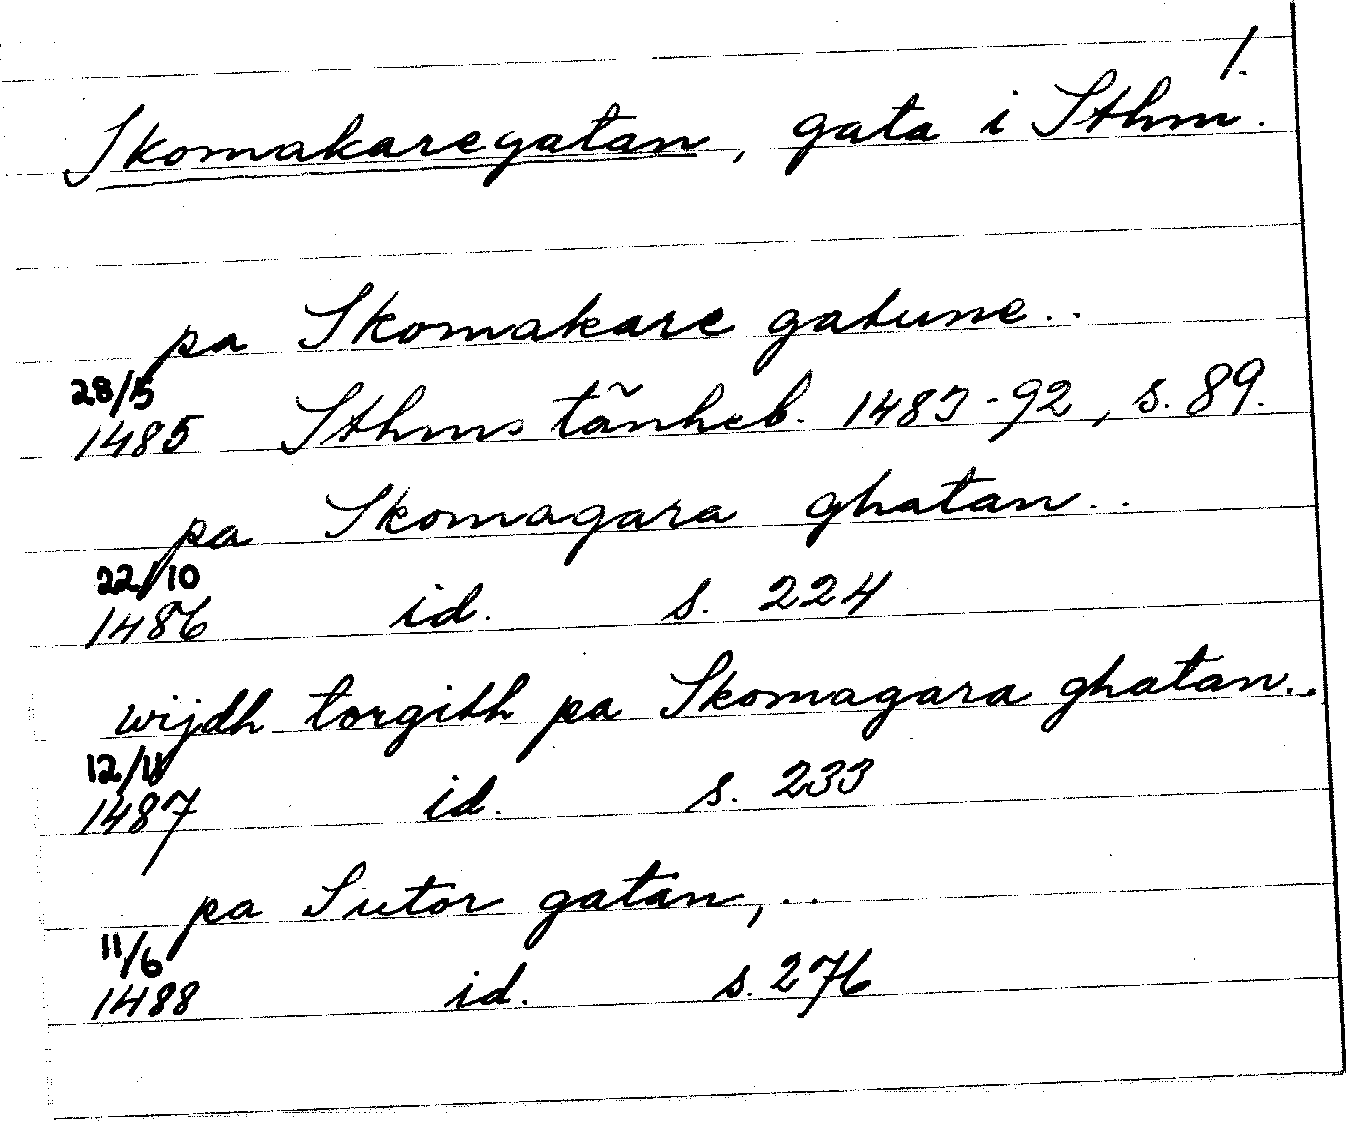 1.
Skomakaregatan, gata i Sthm.
pa Skomakare gatune..
28/5
1485 Sthms tãnkeb. 1483-92, s. 89.
pa Skomagara ghatan..
22/10
1486 id. s. 224
wijdh torgith pa Skomagara ghatan..
12/11
1487 id. s. 233
pa Sutor gatan,..
11/6
1488 id. s. 276